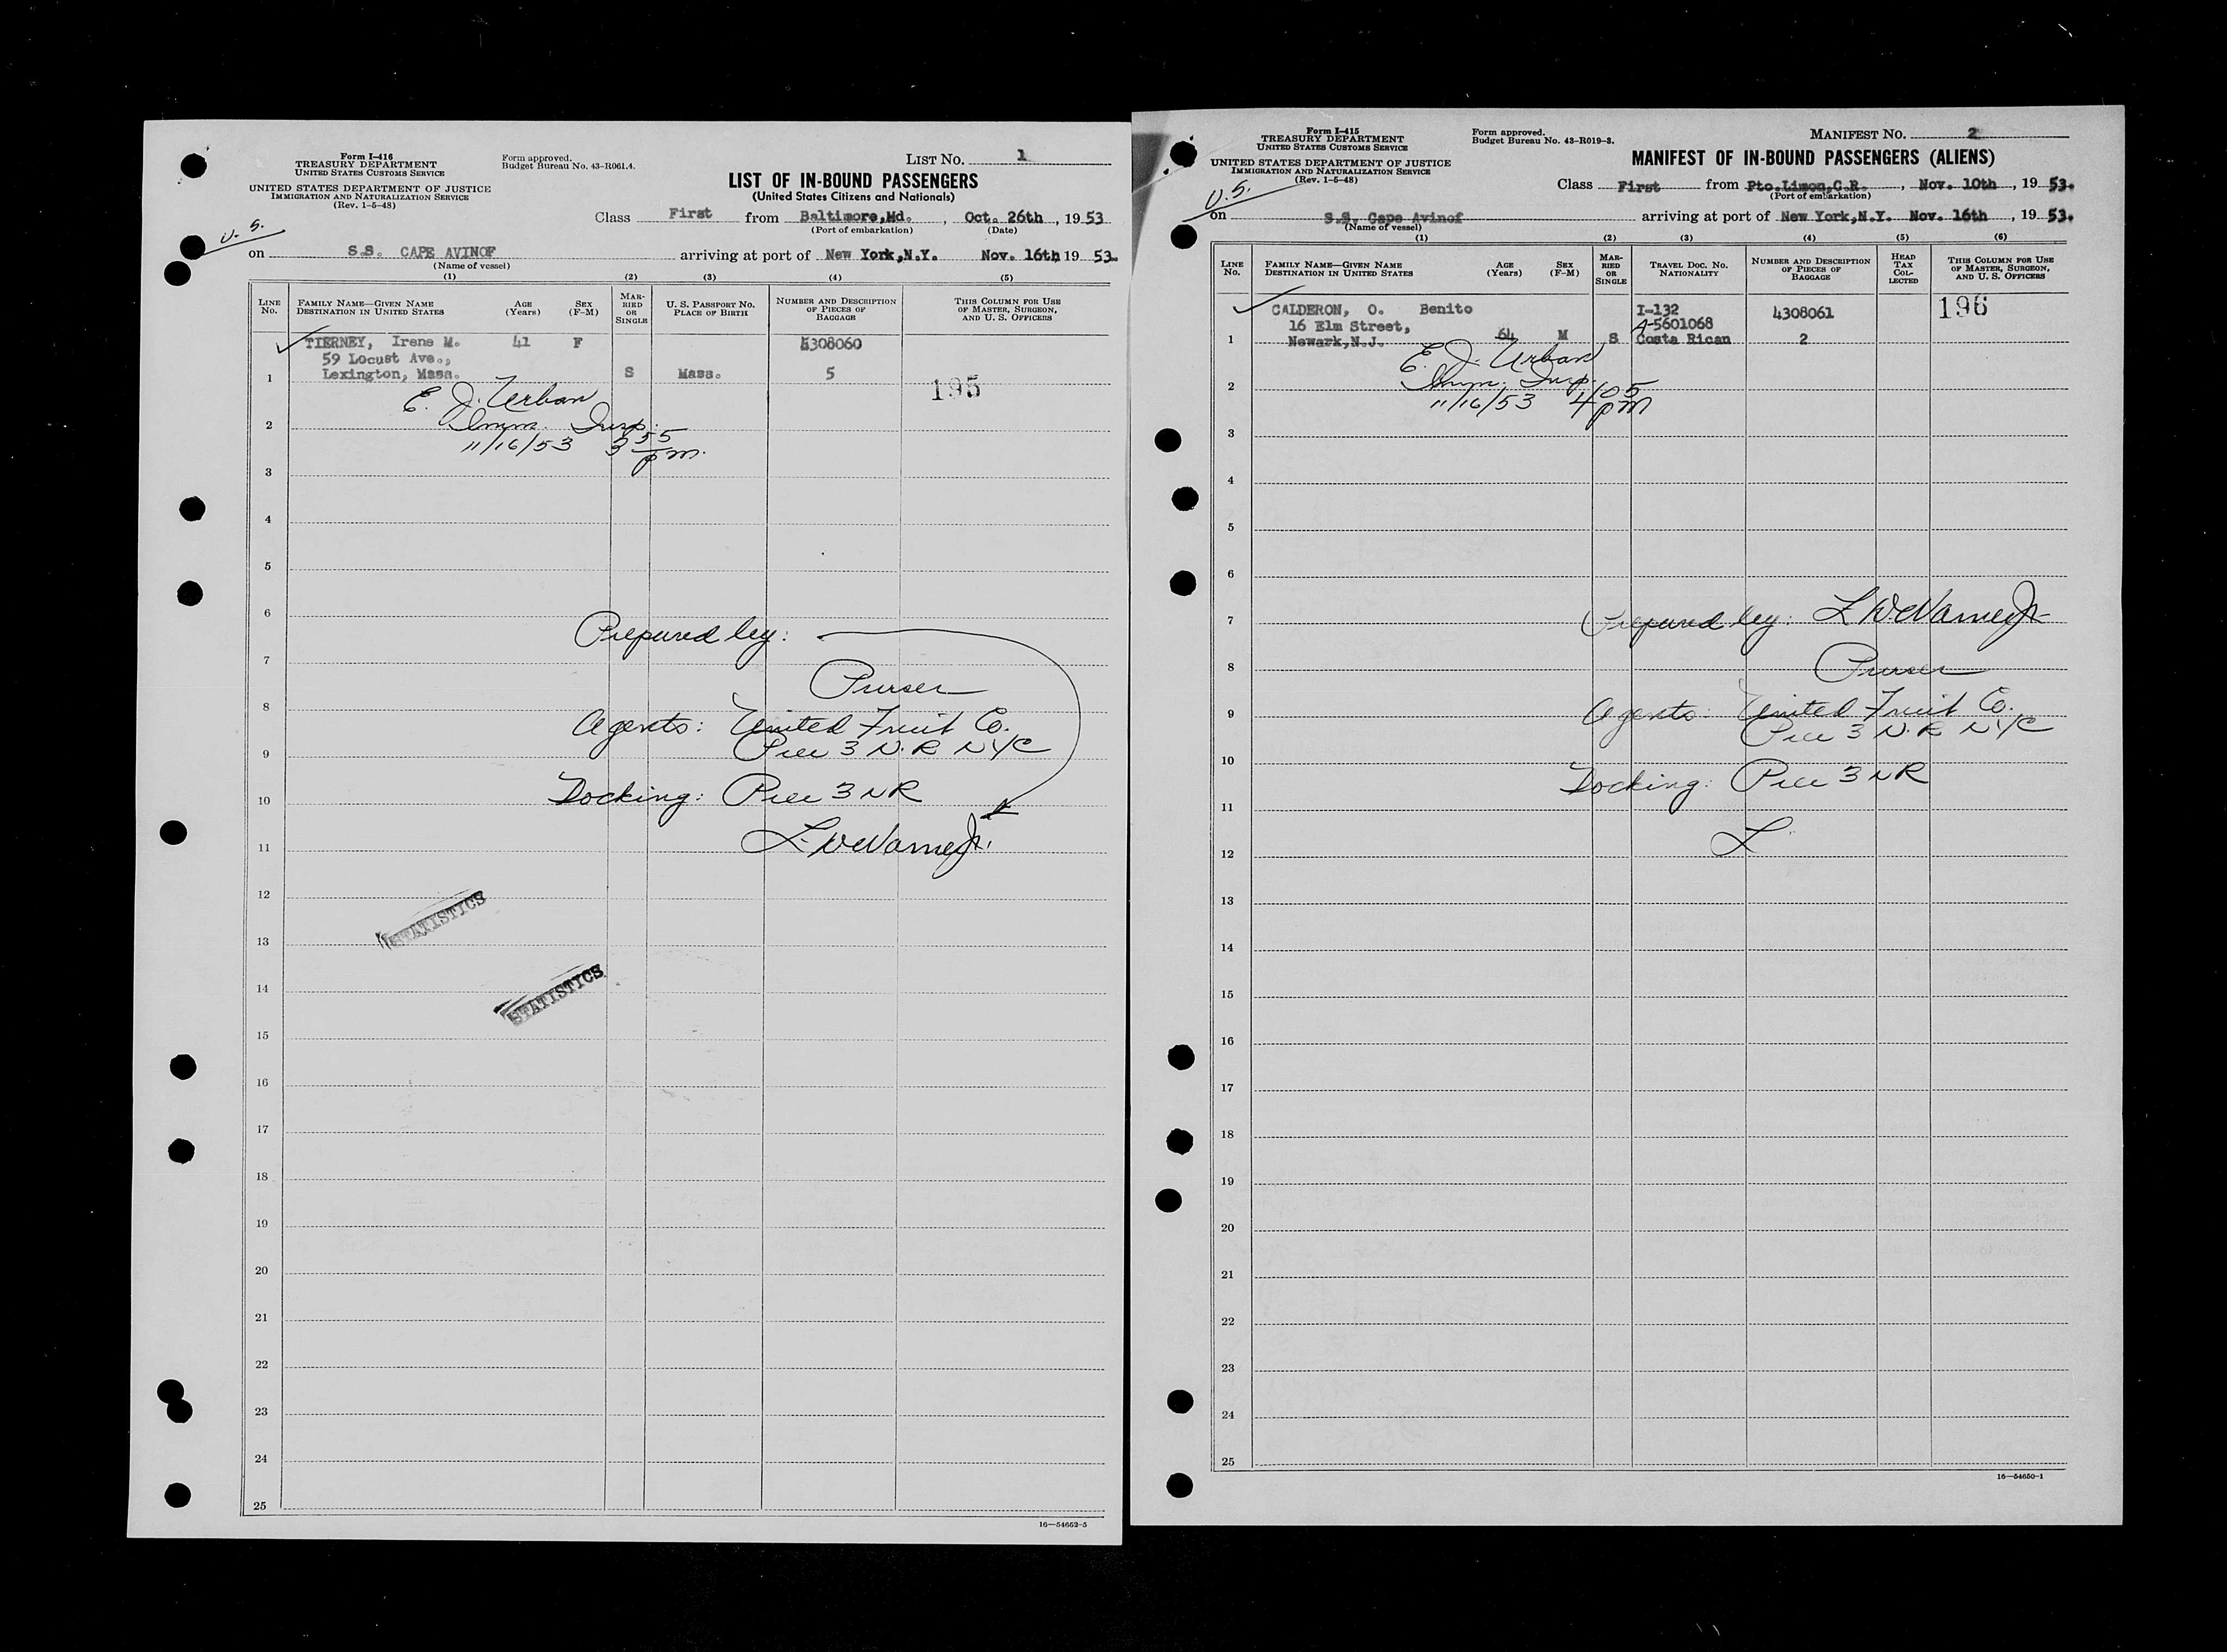 Form I-416
TREASURY DEPARTMENT
UNITED STATES CUSTOMS SERVICE
UNITED STATES DEPARTMENT OF JUSTICE
IMMIGRATION AND NATURALIZATION SERVICE
(Rev. 1-5-48)
Form approved.
Budget Bureau No. 43-R061.4.
LIST NO. 1
LIST OF IN-BOUND PASSENGERS
(United States Citizens and Nationals)
Class First from Baltimore,Md., Oct. 26th, 1953
(Port of embarkation) (Date)
U. S.
on S.S. CAPE AVINOF arriving at port of New York,N.Y. Nov. 16th 1953.
(Name of vessel)
(1) (2) (3) (4) (5)
LINE NO. FAMILY NAME—GIVEN NAME DESTINATION IN UNITED STATES AGE (Years) SEX (F-M) MARRIED OR SINGLE U. S. PASSPORT NO. PLACE OF BIRTH NUMBER AND DESCRIPTION OF PIECES OF BAGGAGE THIS COLUMN FOR USE OF MASTER, SURGEON, AND U. S. OFFICERS
TIERNEY, Irene M. 41 F 4308060
59 Locust Ave.,
1 Lexington, Mass. S Mass. 5 195
E. J. Urban
2 Imm. Insp.
11/16/53 3 55 pm.
3
4
5
6
Prepared by:
7
Purser
8
Agents: United Fruit Co.
9 Pier 3 N.R NYC
10 Docking: Pier 3 NR
11 L. W. Warne Jr.
12
STATISTICS
13
14 STATISTICS
15
16
17
18
19
20
21
22
23
24
25
16—54652-5
Form I-415
TREASURY DEPARTMENT
UNITED STATES CUSTOMS SERVICE
UNITED STATES DEPARTMENT OF JUSTICE
IMMIGRATION AND NATURALIZATION SERVICE
(Rev. 1-5-48)
Form approved.
Budget Bureau No. 43-R019-3.
MANIFEST NO. 2
MANIFEST OF IN-BOUND PASSENGERS (ALIENS)
Class First from Pto.Limon,C.R., Nov. 10th, 1953.
(Port of embarkation)
U.S.
on S.S. Cape Avinof arriving at port of New York,N.Y. Nov. 16th, 1953.
(Name of vessel)
(1) (2) (3) (4) (5) (6)
LINE NO. FAMILY NAME—GIVEN NAME DESTINATION IN UNITED STATES AGE (Years) SEX (F-M) MARRIED OR SINGLE TRAVEL DOC. NO. NATIONALITY NUMBER AND DESCRIPTION OF PIECES OF BAGGAGE HEAD TAX COLLECTED THIS COLUMN FOR USE OF MASTER, SURGEON, AND U. S. OFFICERS
CALDERON, O. Benito I-132 4308061 196
16 Elm Street, A-5601068
1 Newark,N.J. 64 M S Costa Rican 2
E. J. Urban
2 Imm. Insp.
11/16/53 4 05 pm
3
4
5
6
7 Prepared by: L W. Warne Jr
8 Purser
9 Agents: United Fruit Co.
Pier 3 N.R NYC
10 Docking: Pier 3 NR
11
12 L
13
14
15
16
17
18
19
20
21
22
23
24
25
16—54650-1